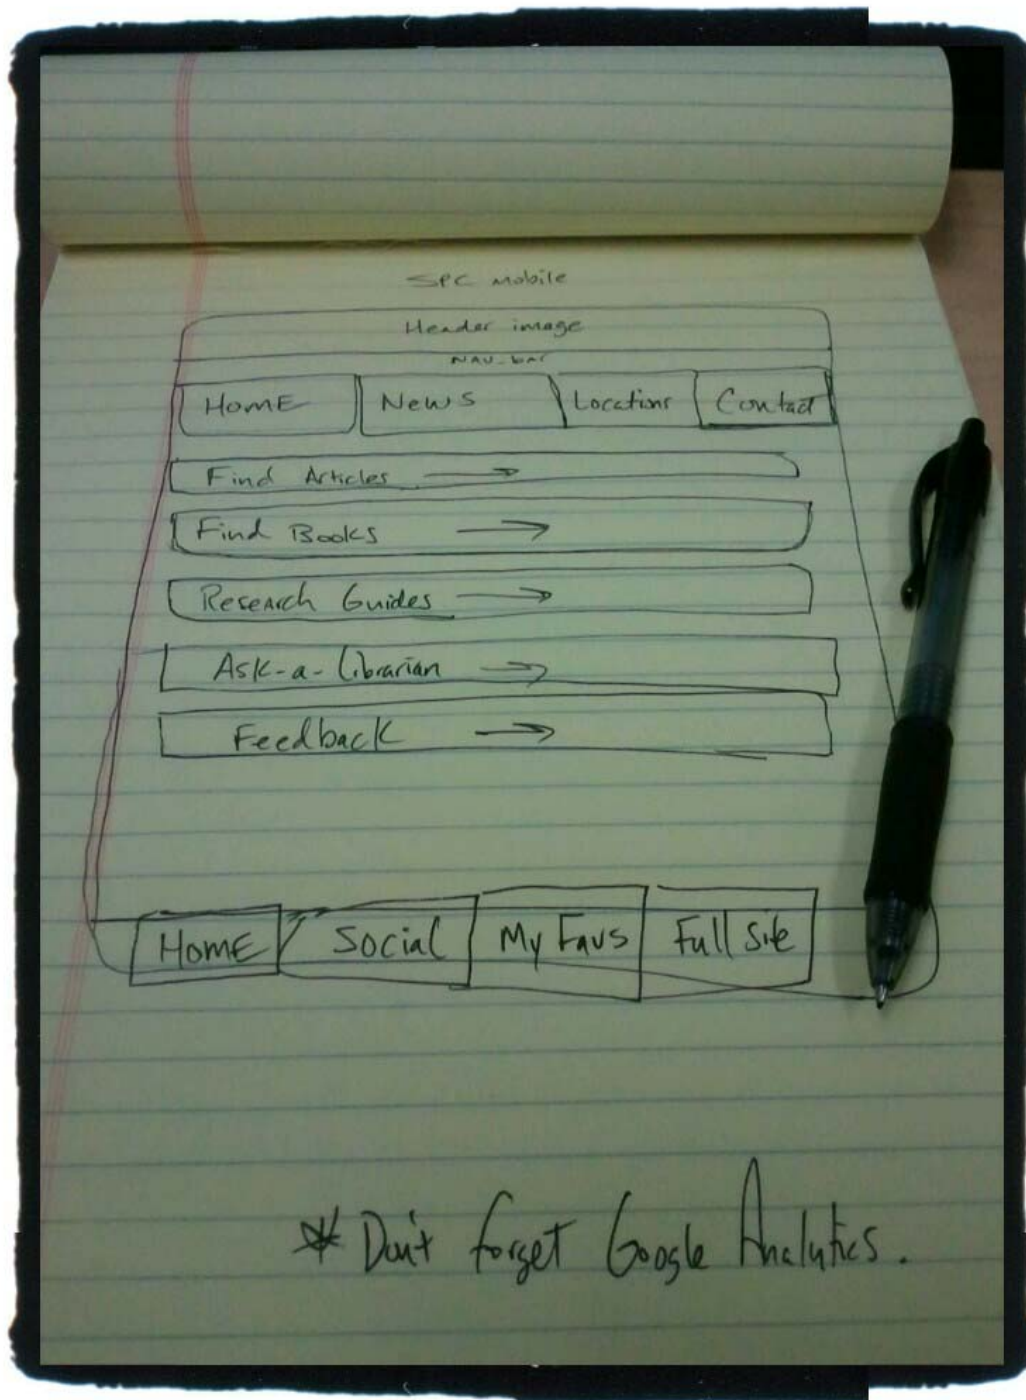 SPC Mobile
Header image
NAV-bar
HOME News Locations Contact
Find Articles →
Find Books →
Research Guides →
Ask-a-Librarian →
Feedback →
HOME Social My Favs Full Site
* Don't forget Google Analytics.